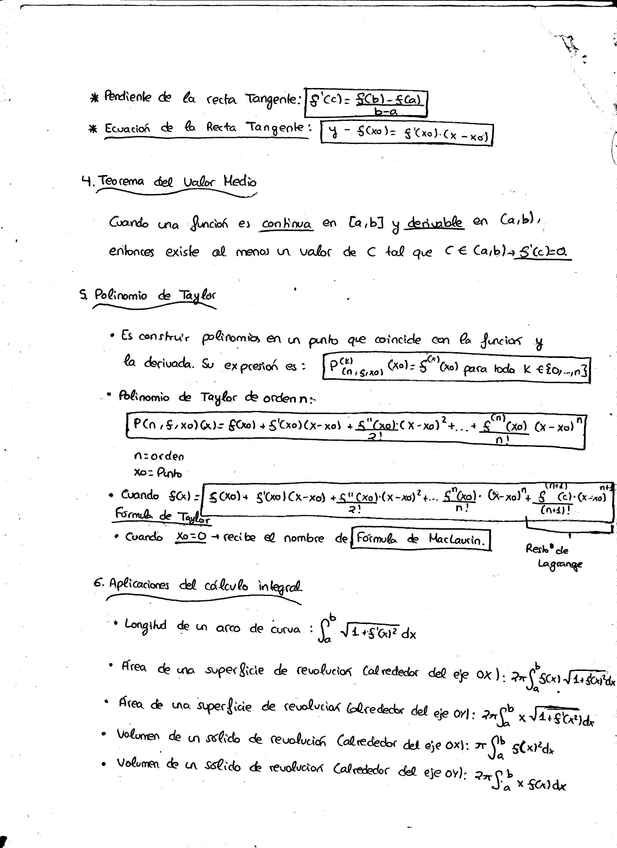 * Pendiente de la recta Tangente: f'(c) = f(b) - f(a) / b-a
* Ecuación de la Recta Tangente: y - f(xo) = f'(xo)·(x - xo)
4. Teorema del Valor Medio
Cuando una función es continua en [a,b] y derivable en (a,b),
entonces existe al menos un valor de C tal que C ∈ (a,b) → f'(c)=0
5. Polinomio de Taylor
• Es construir polinomios en un punto que coincide con la función y
la derivada. Su expresión es: P^(k)_(n,f,xo) (xo) = f^(k)(xo) para todo K ∈ {0,...,n}
• Polinomio de Taylor de orden n:
P(n,f,xo)(x) = f(xo) + f'(xo)(x-xo) + f''(xo)·(x-xo)^2 / 2! + ... + f^(n)(xo) / n! (x-xo)^n
n=orden
xo= Punto
• Cuando f(x) = f(xo) + f'(xo)(x-xo) + f''(xo)·(x-xo)^2 / 2! + ... f^n(xo) / n! · (x-xo)^n + f^(n+1)(c)·(x-xo)^n+1 / (n+1)!
Fórmula de Taylor
• Cuando xo=0 → recibe el nombre de Fórmula de MacLaurin.
Resto de
Lagrange
6. Aplicaciones del cálculo integral
• Longitud de un arco de curva : ∫_a^b √1+f'(x)^2 dx
• Área de una superficie de revolución (alrededor del eje OX): 2π∫_a^b f(x)√1+f'(x)^2 dx
• Área de una superficie de revolución (alrededor del eje OY): 2π∫_a^b x√1+f'(x^2) dx
• Volumen de un sólido de revolución (alrededor del eje OX): π∫_a^b f(x)^2 dx
• Volumen de un sólido de revolución (alrededor del eje OY): 2π∫_a^b x f(x) dx